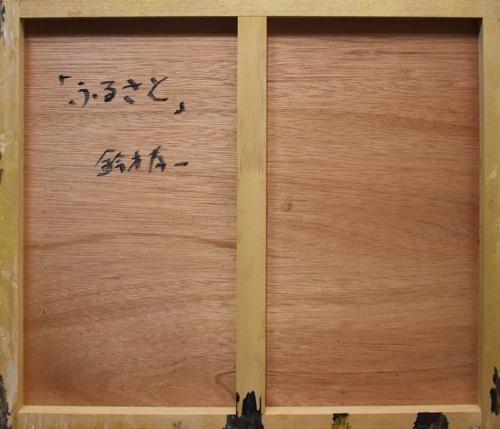 「ふるさと」
鈴木存一